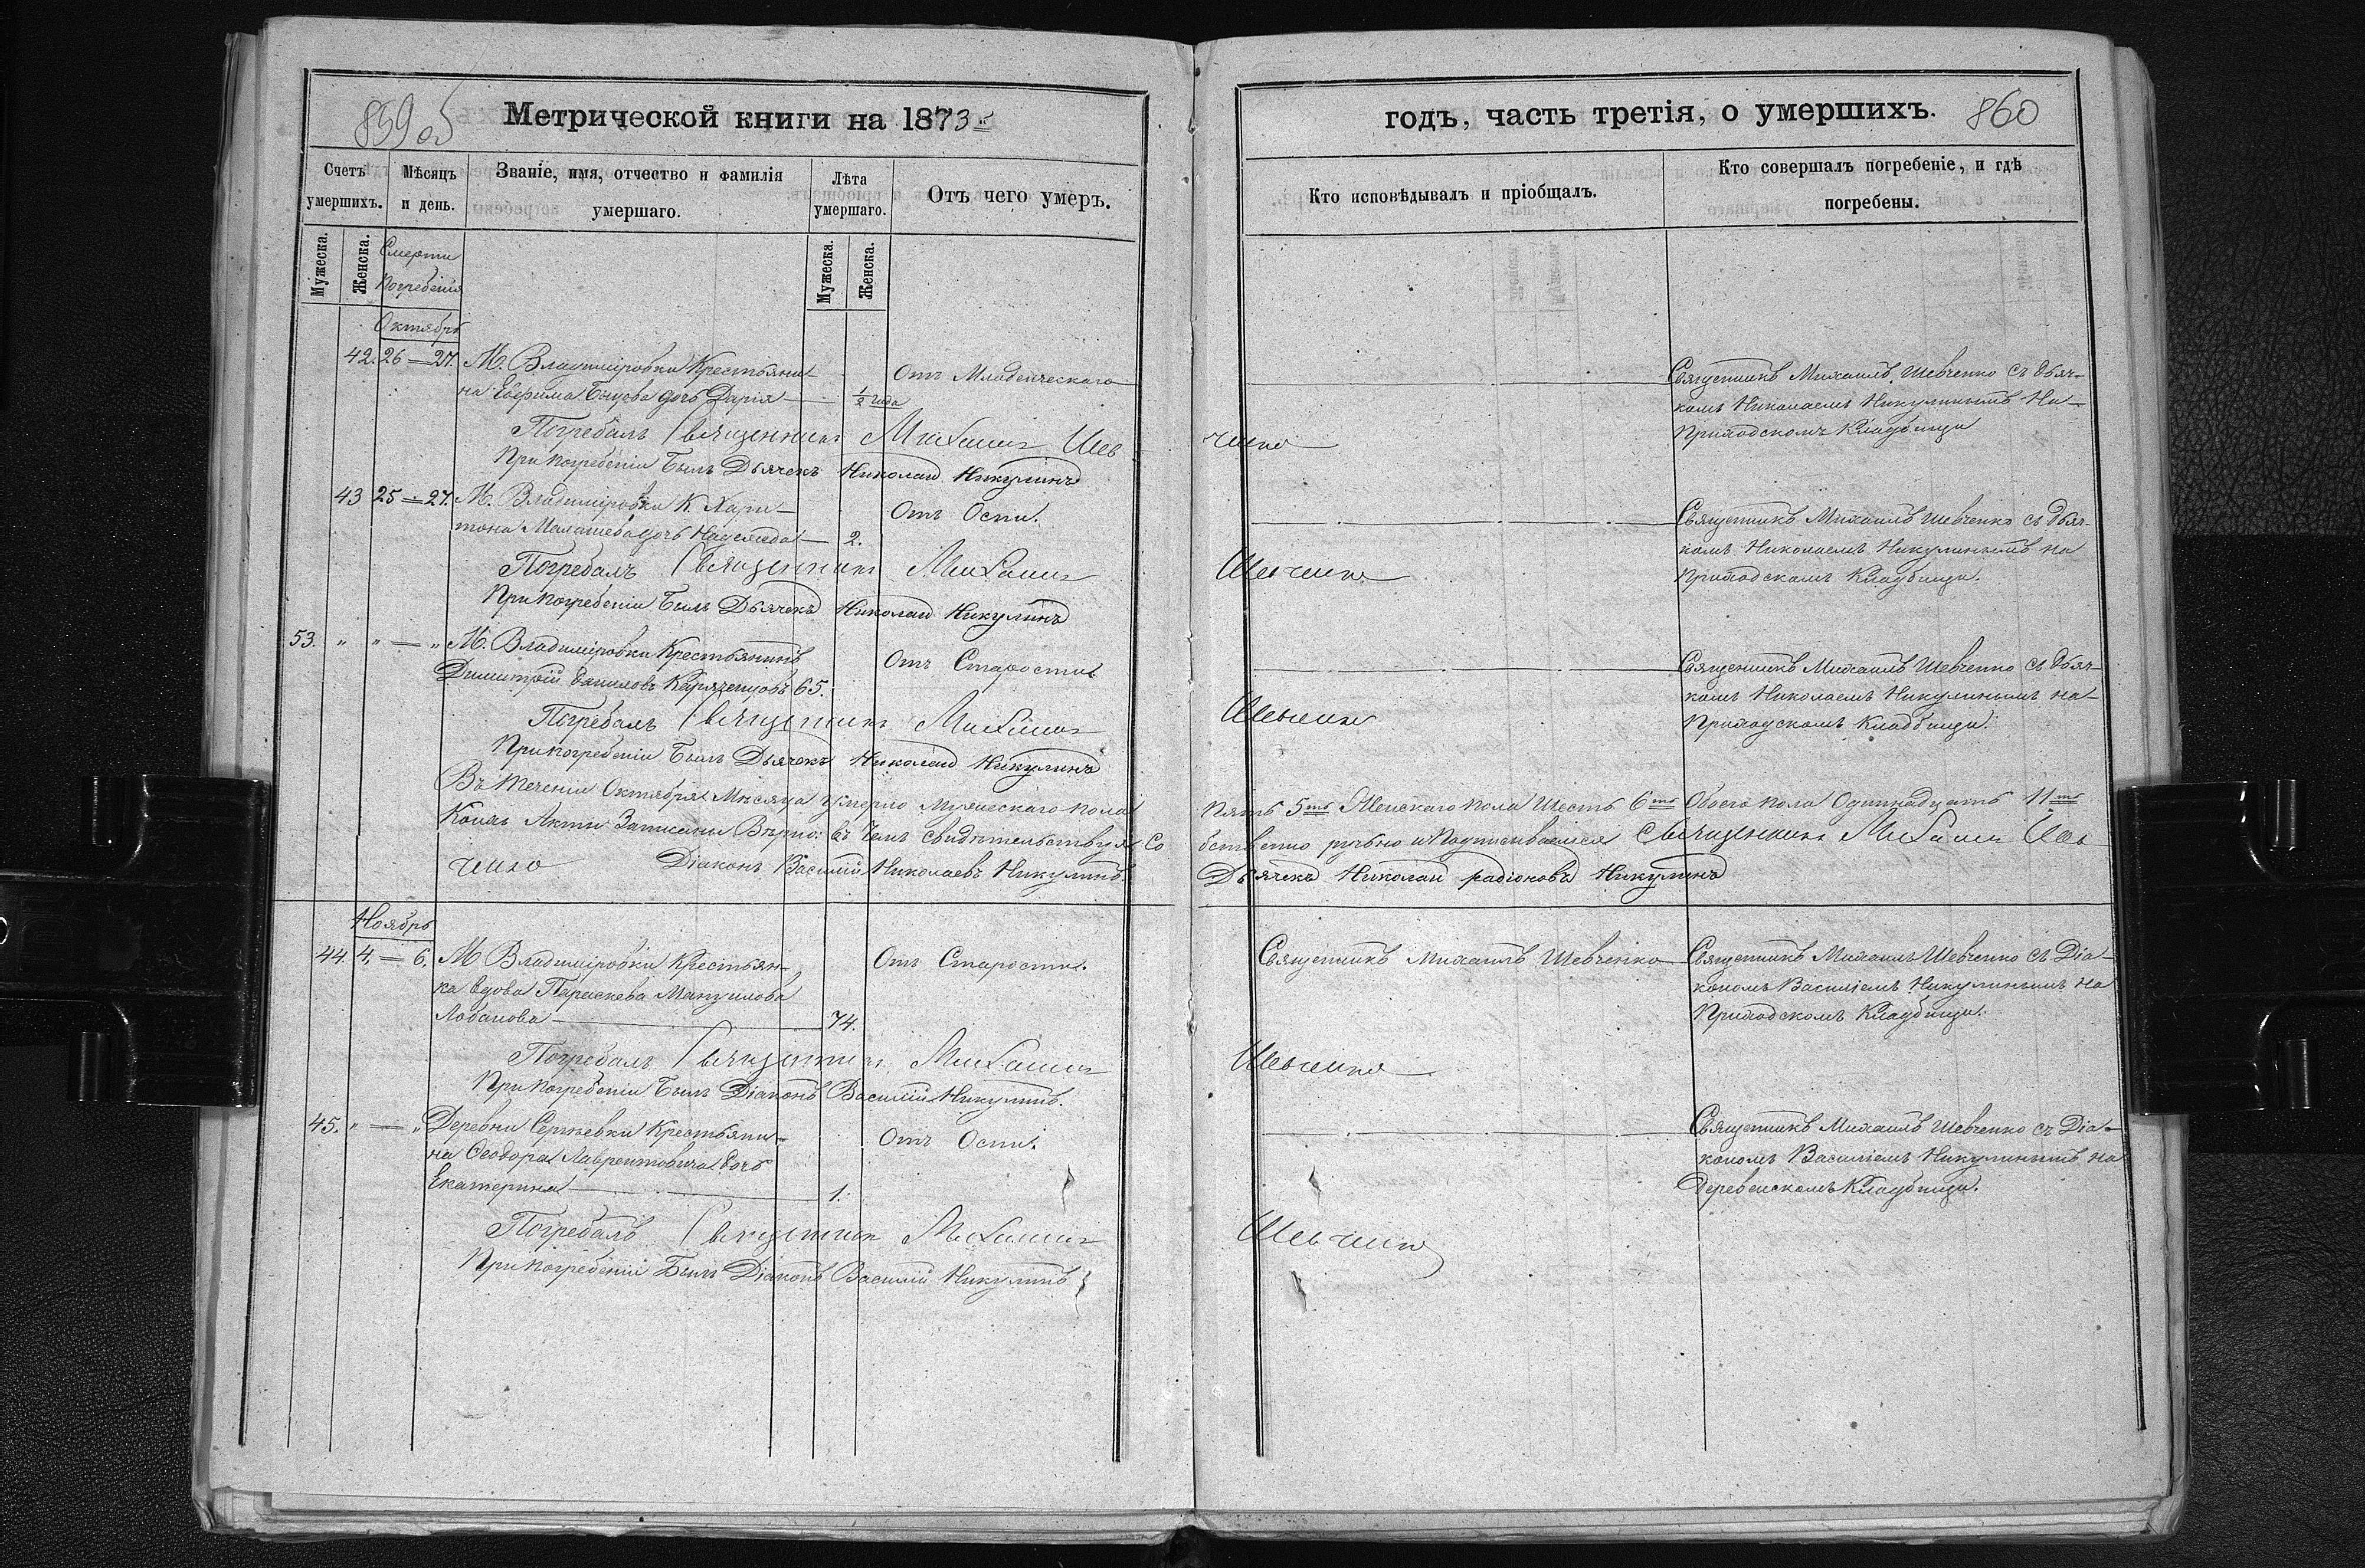 859 об
Метрической книги на 1873
годъ, часть третія, о умершихъ.
860
Счетъ умершихъ.
Мѣсяцъ и день.
Званіе, имя, отчество и фамилія умершаго.
Лѣта умершаго.
Отъ чего умеръ.
Кто исповѣдывалъ и пріобщалъ.
Кто совершалъ погребеніе, и гдѣ погребены.
Мужеска.
Женска.
Смерти
Погребенія
Мужеска.
Женска.
Октябрь
42. 26 — 27. М. Владиміровки Крестьяни-
на Евфима дочь Дарія — 1/2 года
Отъ Младенческаго
Священникъ Михаилъ Шевченко съ дьяч-
комъ Николаемъ Никулинымъ На-
Приходскомъ Кладбищи
Погребалъ Священникъ Михаилъ Шев
ченко
При погребеніи былъ Дьячекъ Николай Никулинъ
43 25 — 27. М. Владиміровки К. Хари-
тона дочь Надежда — 2.
Отъ Оспи.
Священникъ Михаилъ Шевченко съ дьяч-
комъ Николаемъ Никулинымъ на
Приходскомъ Кладбищи.
Погребалъ Священникъ Михаилъ
Шевченко
При погребеніи былъ Дьячекъ Николай Никулинъ
53. " " — " М. Владиміровки Крестьянинъ
Димитрій Даниловъ 65.
Отъ Старости
Священникъ Михаилъ Шевченко съ дьяч-
комъ Николаемъ Никулинымъ на-
Приходскомъ Кладбищи.
Погребалъ Священникъ Михаилъ
Шевченко
При погребеніи былъ Дьячекъ Николай Никулинъ
Въ теченіи Октября Мѣсяца умерло Мужескаго пола
Пять 5ть Женскаго пола Шесть 6ть Обоего пола Одинадцать 11ть
Коихъ Акты Записаны Вѣрно: въ чемъ свидѣтельствуя Со
бственно ручьно и Подписываемся Священникъ Михаилъ Шев
ченко Діаконъ Василій Николаевъ Никулинъ.
Дьячекъ Николай радіоновъ Никулинъ
Ноябрь
44. 4. — 6. М Владиміровки Крестьян-
ка вдова Параскева Мануилова
Лобанова — 74.
Отъ Старости.
Священникъ Михаилъ Шевченко
Священникъ Михаилъ Шевченко съ Діа-
кономъ Василіемъ Никулинымъ на
Приходскомъ Кладбищи.
Погребалъ Священникъ Михаилъ
Шевченко
При погребеніи былъ Діаконъ Василій Никулинъ.
45. " — " Деревни Сергѣевки Крестьяни-
на Ѳеодора Лаврентовича дочь
Екатерина — 1.
Отъ Оспи.
Священникъ Михаилъ Шевченко съ Діа-
кономъ Василіемъ Никулинымъ на
Деревенскомъ Кладбищи.
Погребалъ Священник Михаилъ
Шевченко
При погребеніи Былъ Діаконъ Василій Никулинъ